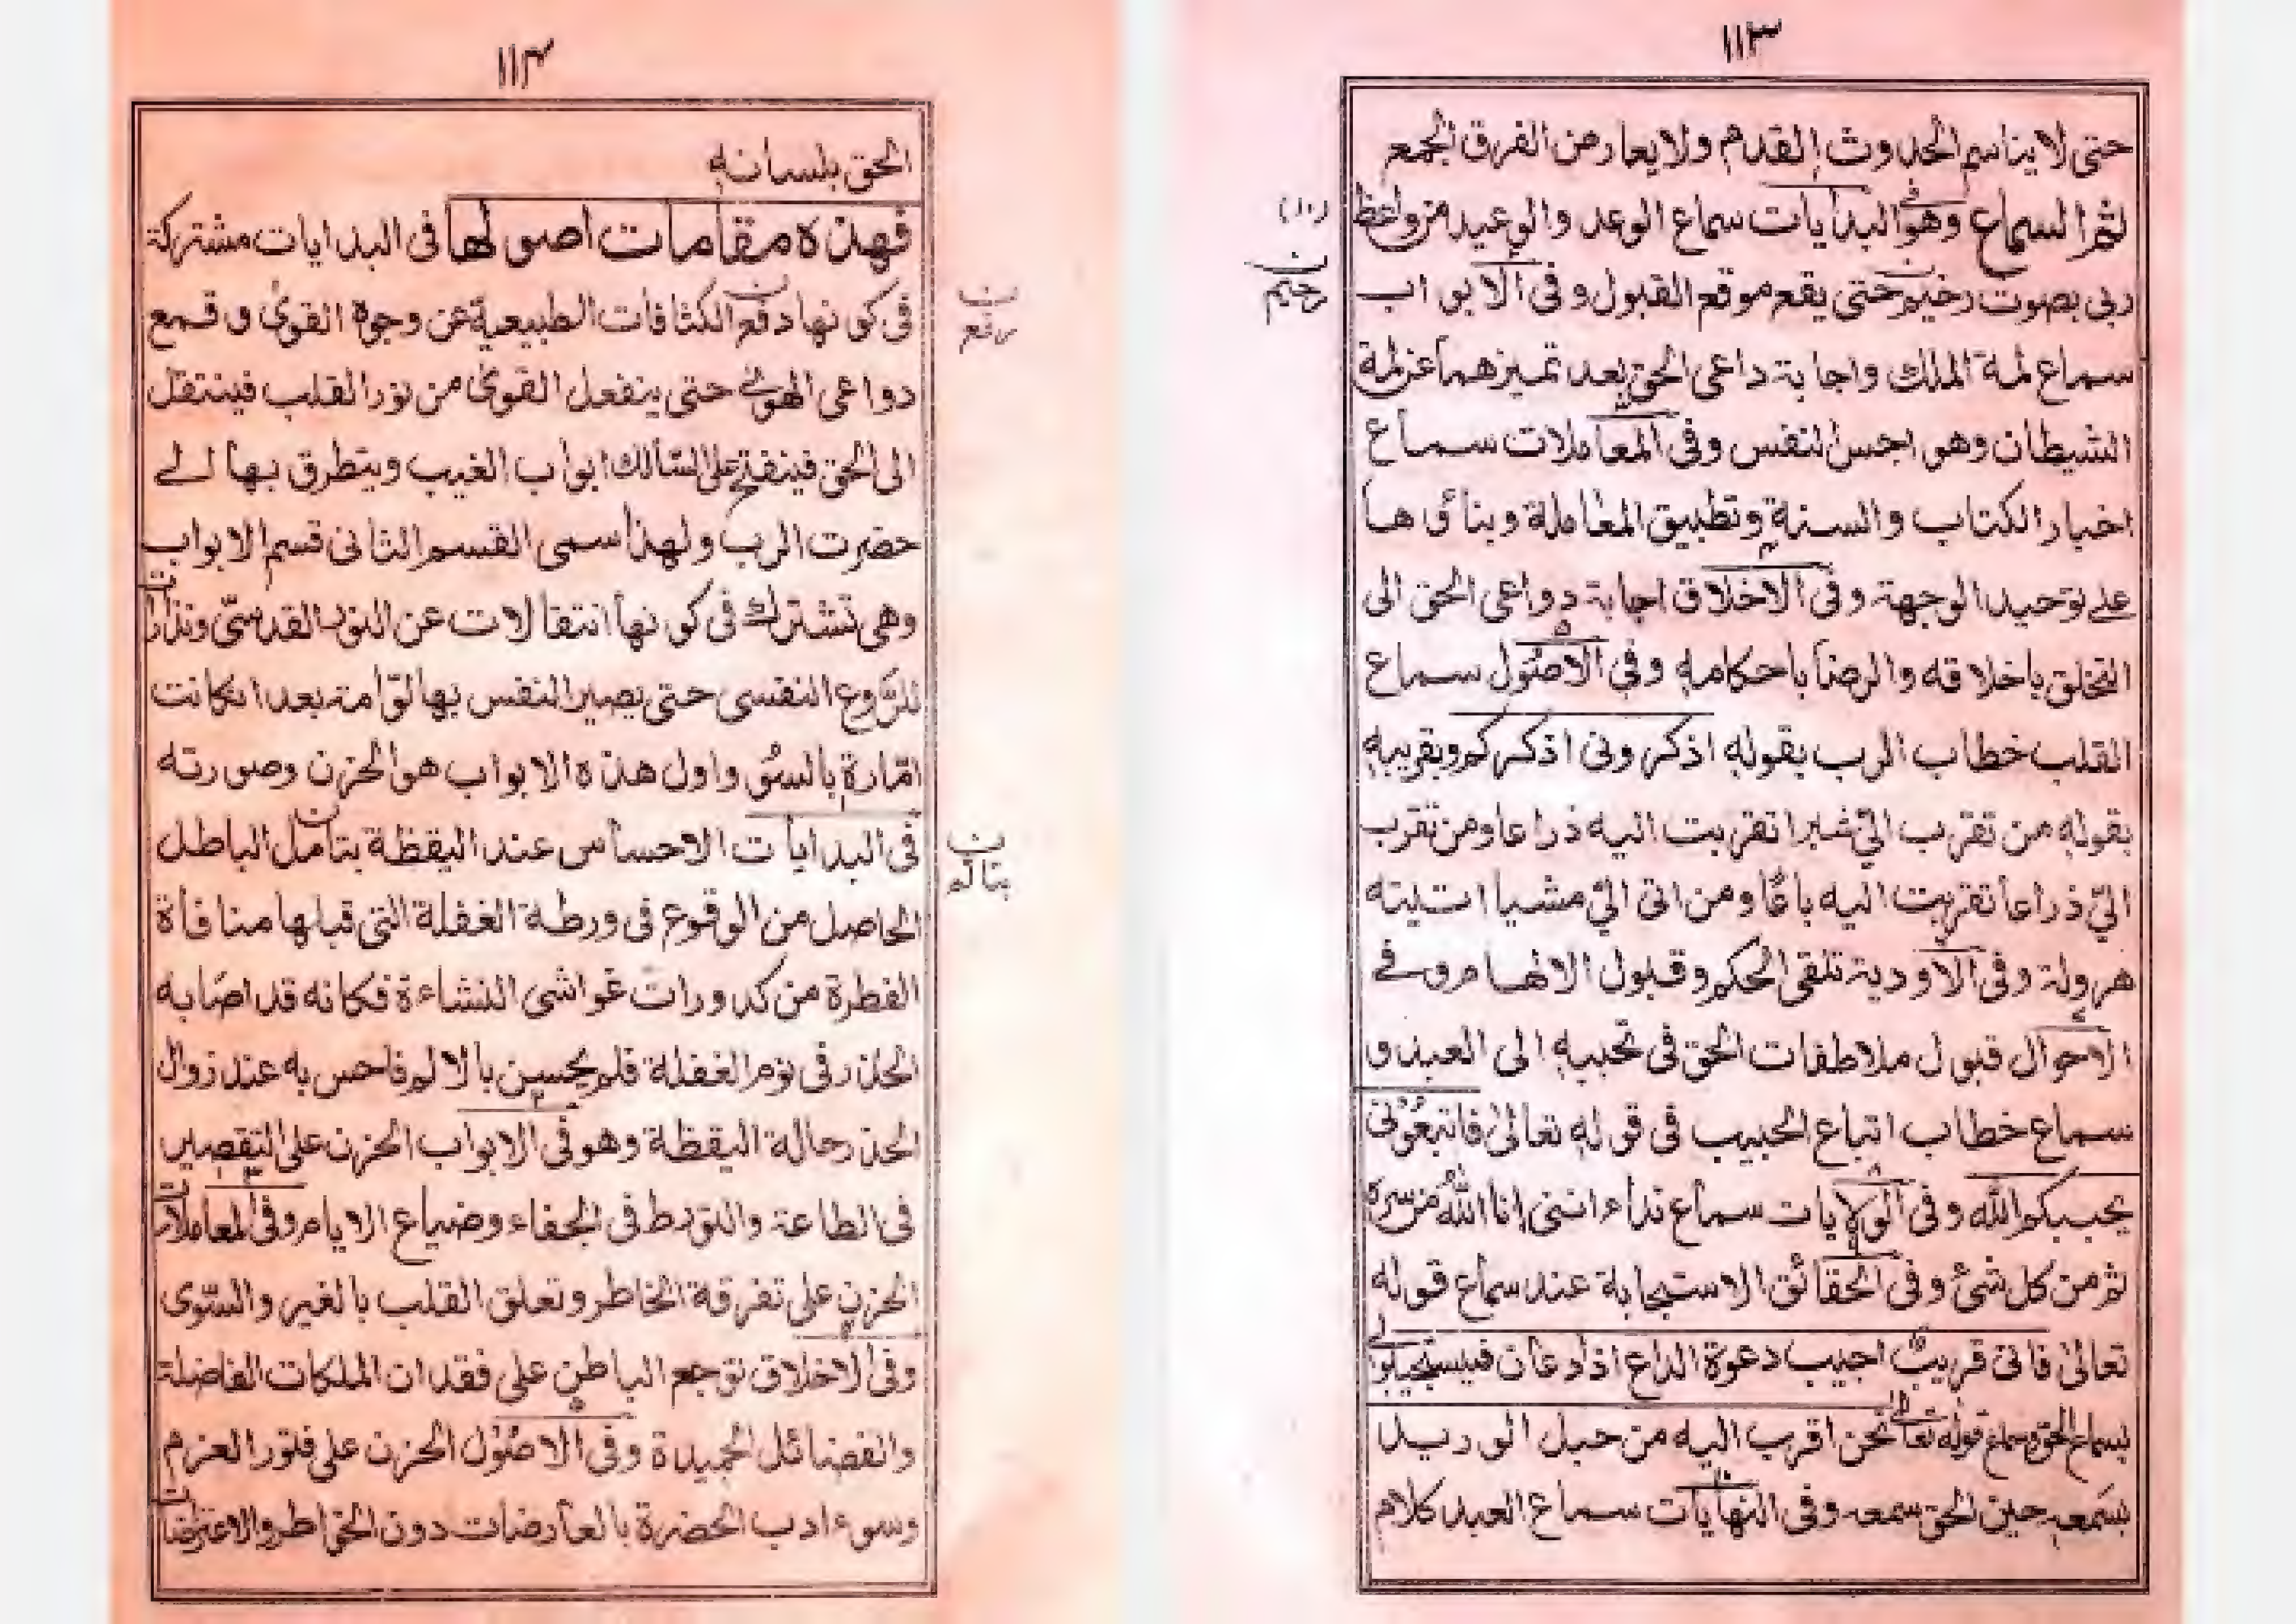 ١١٣
حتى لا يناسم الحدوث القدم ولا يعارض الفرق الجمع
ثم السماع وهو فى البدايات سماع الوعد والوعيد من واعظ
(١٠)
ربى بصوت رخيم حتى يقع موقع القبول وفى الابواب
ن
رخيم
سماع لمة الملك واجابة داعى الحق بعد تميزهما عن لمة
الشيطان وهواجس النفس وفى المعاملات سماع
اخبار الكتاب والسنة وتطبيق المعاملة وبناؤها
على توحيد الوجهة وفى الاخلاق اجابة دواعى الحق الى
التخلق باخلاقه والرضا باحكامه وفى الاصول سماع
القلب خطاب الرب بقوله اذكرونى اذكركم وبقريبه
بقوله من تقرب الىّ شبرا تقربت اليه ذراعا ومن تقرب
الىّ ذراعا تقربت اليه باعًا ومن اتى الىّ مشيا اتيته
هرولة وفى الاودية تلقى الحكم وقبول الالهام وفے
الاحوال قبول ملاطفات الحق فى تحببه الى العبد و
سماع خطاب اتباع الحبيب فى قوله تعالىٰ فاتبعُونى
يحببكم الله وفى الولايات سماع نداء اننى انا اللهُ من سره
ثم من كل شئ وفى الحقائق الاستجابة عند سماع قوله
تعالىٰ فانى قريبٌ اجيب دعوة الداع اذا دعان فليستجيبوا لى
بسماع الحق وسماع قوله تعالى نحن اقرب اليه من حبل الوريد
بسمعه حين الحق سمعه وفى النهايات سماع العبد كلام
١١٤
الحق بلسانه
فهذه مقامات اصولها فى البدايات مشتركة
فى كونها دفع الكثافات الطبيعية عن وجوه القوىٰ وقمع
ن
رفع
دواعى الهوىٰ حتى ينفعل القوىٰ من نور القلب فينتقل
الى الحق فينفتح على السالك ابواب الغيب ويتطرق بها الے
حضرت الرب ولهذا سمى القسم الثانى قسم الابواب
وهى تشترك فى كونها انتقالات عن النور القدسىّ
النفسى حتى يصير النفس بها لوّامة بعد ان كانت
امّارة بالسوٴ واول هذه الابواب هو الحزن وصورته
فى البدايات الاحساس عند اليقظة بتامل الباطل
ن
بتالم
الحاصل من الوقوع فى ورطة الغفلة التى قبلها منافاة
الفطرة من كدورات غواشى النشاءة فكانه قد اصابه
الخدر فى نوم الغفلة فلم يحسن بالالم فاحس به عند زوال
الخدر حالة اليقظة وهو فى الابواب الحزن على التقصير
فى الطاعة والتورط فى الجفاء وضياع الايام وفى المعاملات
الحزن على تفرقة الخاطر وتعلق القلب بالغير والسّوى
وفى الاخلاق توجع الباطن على فقدان الملكات الفاضلة
والفضائل الحميدة وفى الاصُوْل الحزن على فتور العزم
وسوء ادب الحضرة بالعارضات دون الخواطر والاعتراضات